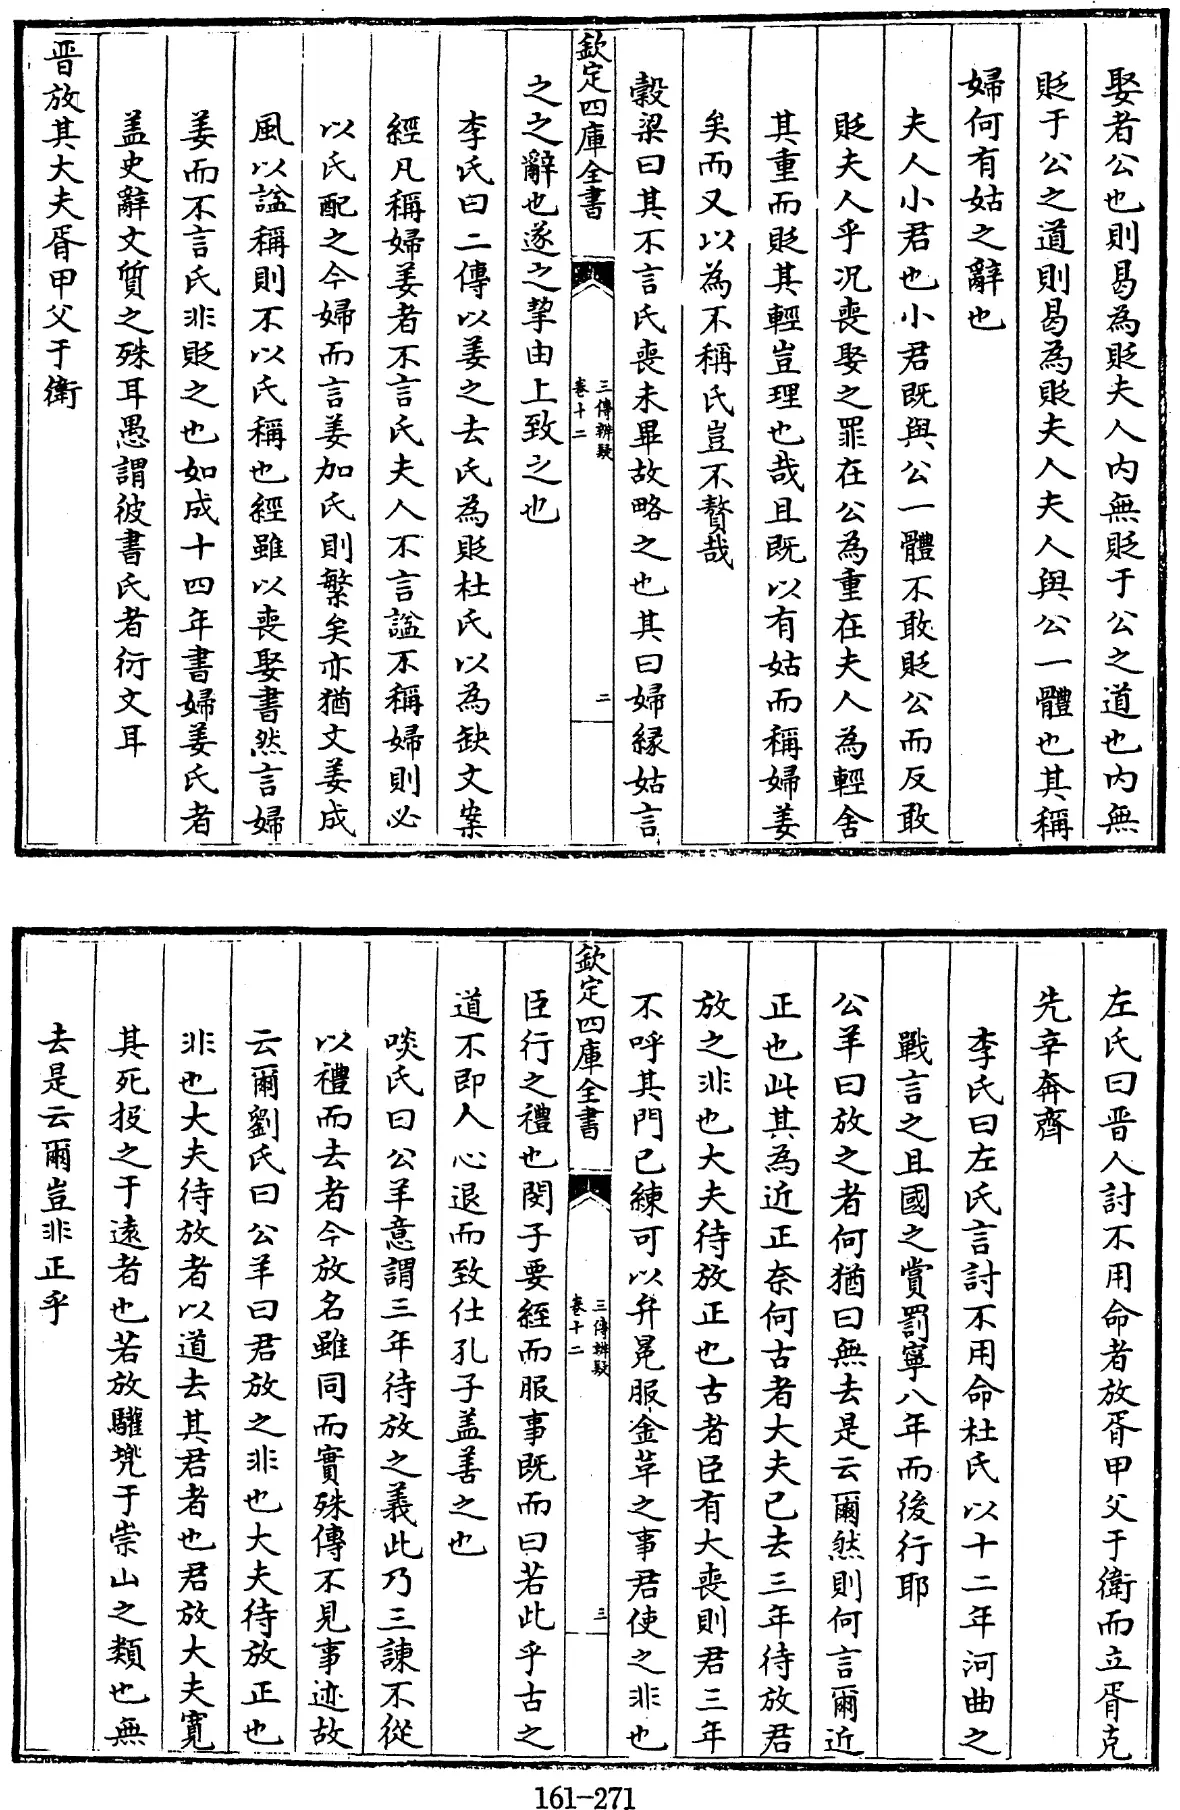 娶者公也則曷為貶夫人内無貶于公之道也内無
貶于公之道則曷為貶夫人夫人與公一體也其稱
婦何有姑之辭也
夫人小君也小君既與公一體不敢貶公而反敢
貶夫人乎况喪娶之罪在公為重在夫人為輕舍
其重而貶其輕豈理也哉且既以有姑而稱婦姜
矣而又以為不稱氏豈不贅哉
穀梁曰其不言氏喪未畢故略之也其曰婦緣姑言
欽定四庫全書
三傳辨疑
卷十二
二
之之辭也遂之挈由上致之也
李氏曰二傳以姜之去氏為貶杜氏以為缺文案
經凡稱婦姜者不言氏夫人不言諡不稱婦則必
以氏配之今婦而言姜加氏則繁矣亦猶文姜成
風以諡稱則不以氏稱也經雖以喪娶書然言婦
姜而不言氏非貶之也如成十四年書婦姜氏者
盖史辭文質之殊耳愚謂彼書氏者衍文耳
晋放其大夫胥甲父于衛
左氏曰晋人討不用命者放胥甲父于衛而立胥克
先辛奔齊
李氏曰左氏言討不用命杜氏以十二年河曲之
戰言之且國之賞罰寧八年而後行耶
公羊曰放之者何猶曰無去是云爾然則何言爾近
正也此其為近正奈何古者大夫已去三年待放君
放之非也大夫待放正也古者臣有大喪則君三年
不呼其門已練可以弁冕服金革之事君使之非也
欽定四庫全書
三傳辨疑
卷十二
三
臣行之禮也閔子要絰而服事既而曰若此乎古之
道不即人心退而致仕孔子盖善之也
啖氏曰公羊意謂三年待放之義此乃三諫不從
以禮而去者今放名雖同而實殊傳不見事迹故
云爾劉氏曰公羊曰君放之非也大夫待放正也
非也大夫待放者以道去其君者也君放大夫寛
其死投之于逺者也若放驩兜于崇山之類也無
去是云爾豈非正乎
161-271